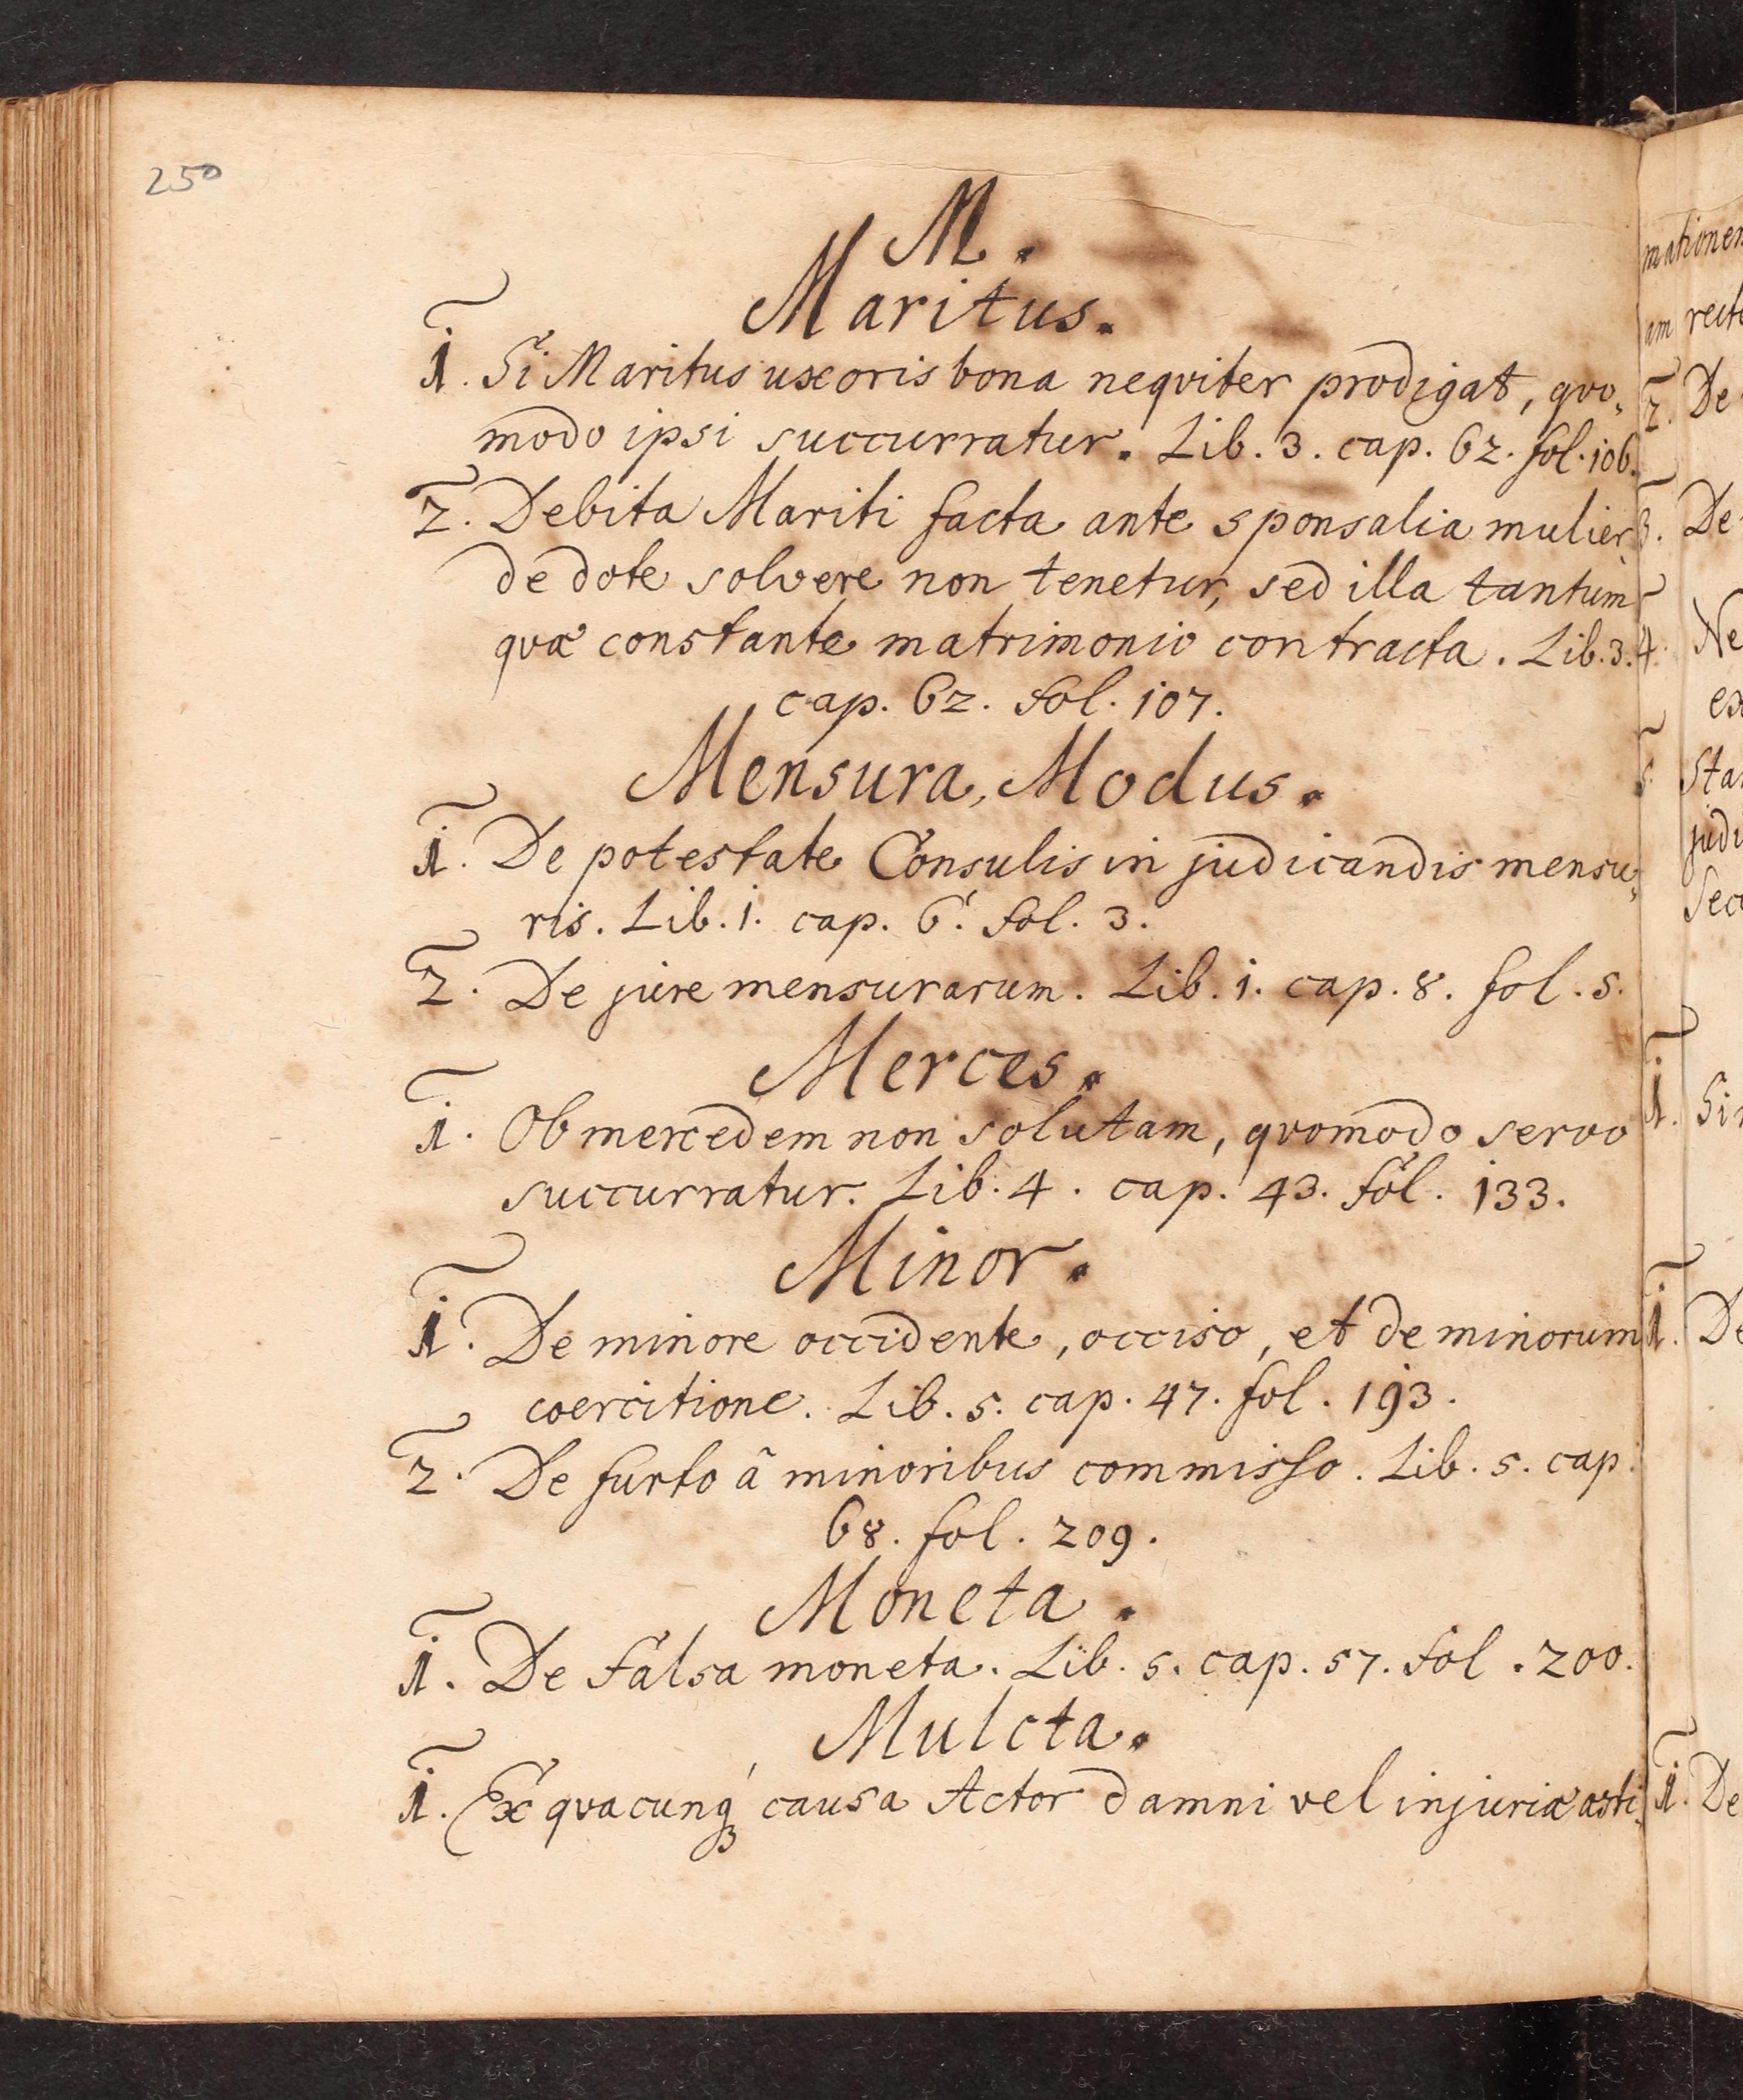 250
M.
Maritus.
1. Si Maritus uxoris bona neqviter prodigat, qvo„
modo ipsi succurratur. Lib. 3. cap. 62. fol. 106.
2. Debita Mariti facta ante sponsalia mulier
de dote solvere non tenetur, sed illa tantùm
qvæ constante matrimonio contracta. Lib. 3.
cap. 62. fol. 107.
Mensura, Modus.
1. De potestate Consulis in judicandis mensu„
ris. Lib. 1. cap. 6. fol. 3.
2. De jure mensurarum. Lib. 1. cap. 8. fol. 5.
Merces.
1. Ob mercedem non solutam, qvomodo servo
succurratur. Lib. 4. cap. 43. fol. 133.
Minor.
1. De minore occidente, occiso, et de minorum
coercitione. Lib. 5. cap. 47. fol. 193.
2. De furto â minoribus commisso. Lib. 5. cap.
68. fol. 209.
Moneta.
1. De falsa moneta. Lib. 5. cap. 57. fol. 200.
Mulcta.
1. Ex qvacunq́ꝫ causa Actor damni vel injuriæ æsti„
mationem
am recte
2. De
3. De
4. Ne
ex
5. sta
judi
Secu
1. Si
1. De
1. De